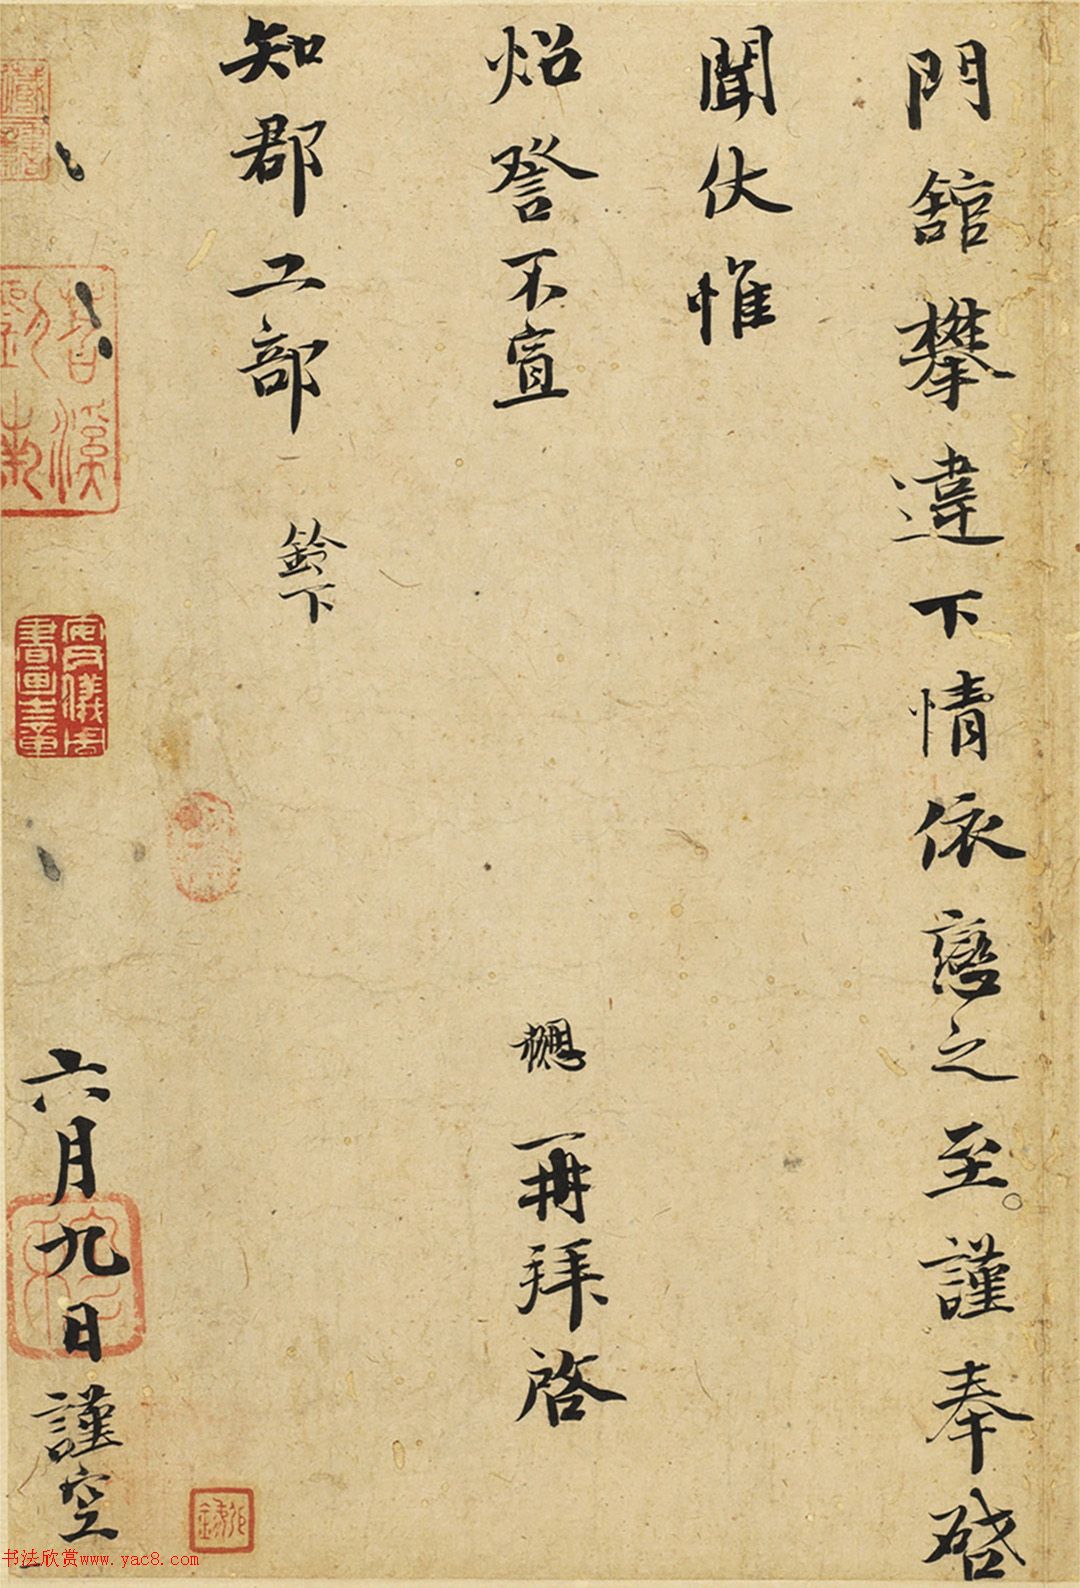 門舘攀違下情依戀之至謹奉啓
聞伏惟
炤詧不宣
再拜啓
知郡工部
鈴下
六月九日謹空
安儀周書畫之章
書法欣赏www.yac8.com